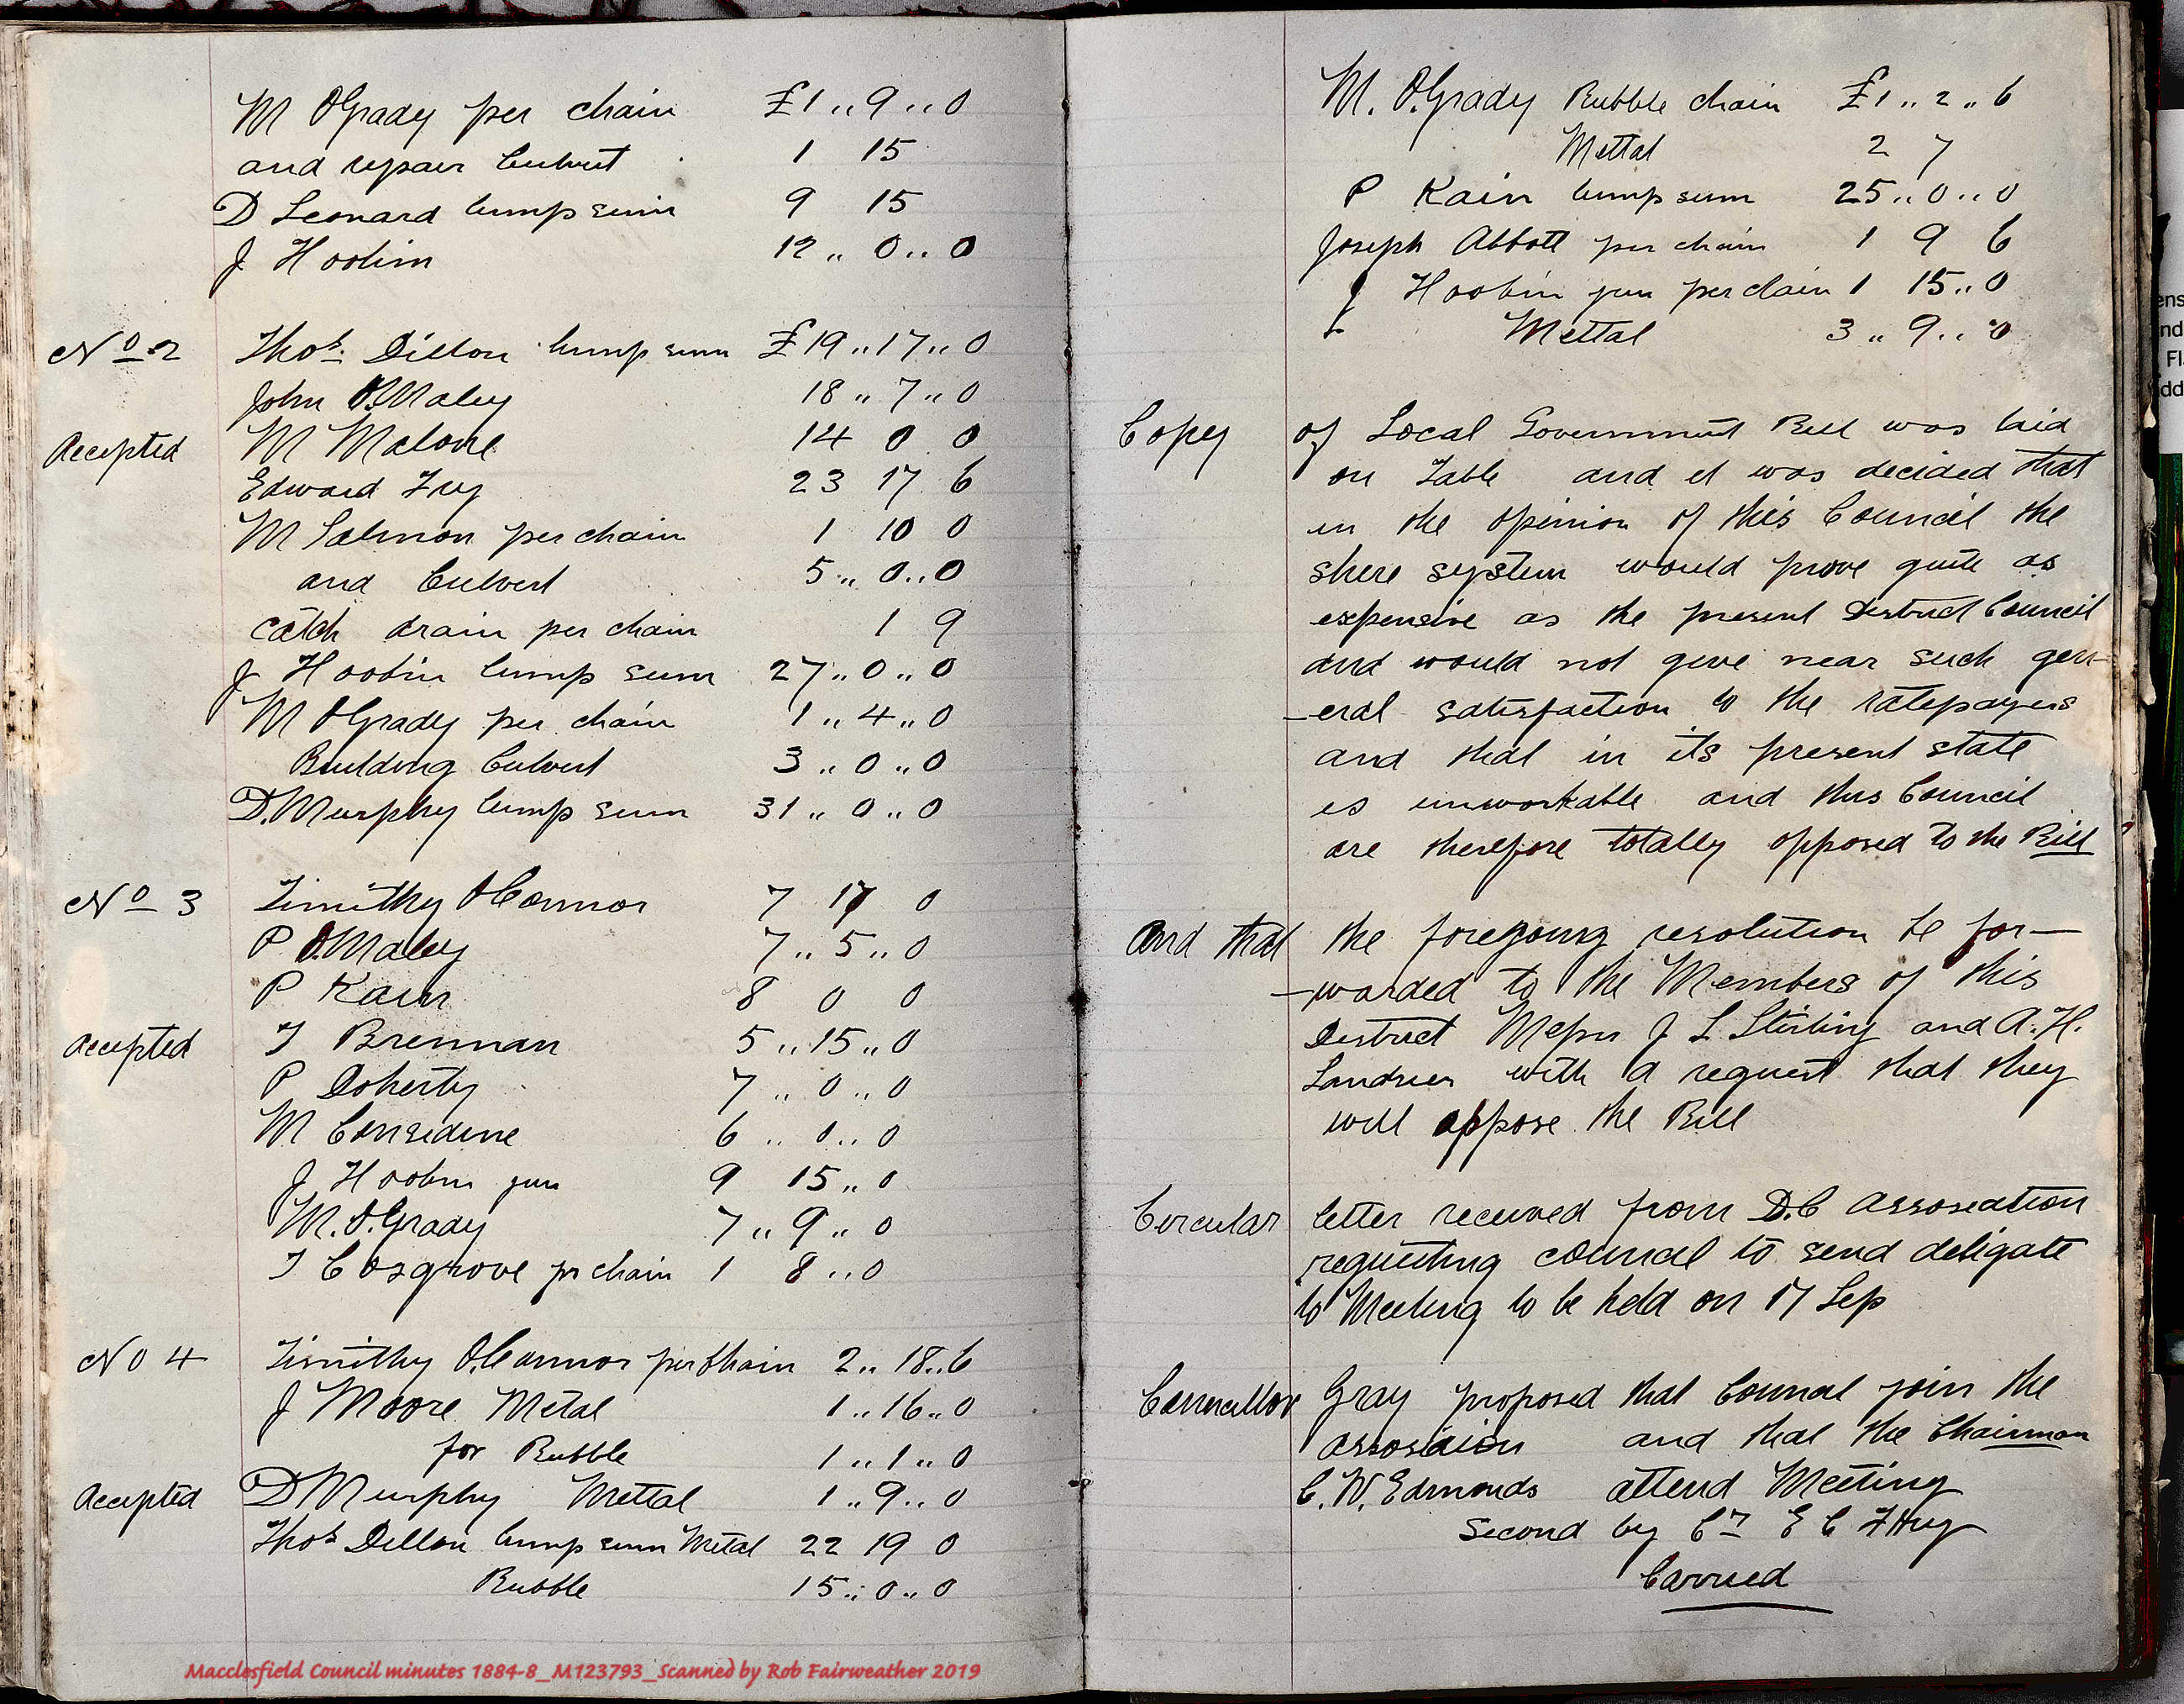 M O'Grady per chain £1 ,, 9 ,, 0
and repair Culvert 1 15
D Leonard lump sum 9 15
J Hoobin 12 ,, 0 ,, 0
No 2 Thos. Dillon lump sum £19 ,, 17 ,, 0
John O.Maley 18 ,, 7 ,, 0
Accepted M Malone 14 0 0
Edward Fry 23 17 6
M Salmon per chain 1 10 0
and Culvert 5 ,, 0 ,, 0
catch drain per chain 1 9
J Hoobin lump sum 27 ,, 0 ,, 0
M OGrady per chain 1 ,, 4 ,, 0
Building Culvert 3 ,, 0 ,, 0
D. Murphy lump sum 31 ,, 0 ,, 0
No 3 Timithy OConnor 7 17 0
P O.Maley 7 ,, 5 ,, 0
P Kain 8 0 0
Accepted T Brennan 5 ,, 15 ,, 0
P Doherty 7 ,, 0 ,, 0
M Considine 6 ,, 0 ,, 0
J Hoobin jun 9 15 ,, 0
M. O.Grady 7 ,, 9 ,, 0
T Cosgrove pr chain 1 8 ,, 0
No 4 Timithy O.Connor per Chain 2 ,, 18 ,, 6
J Moore Metal 1 ,, 16 ,, 0
for Rubble 1 ,, 1 ,, 0
Accepted D Murphy Mettal 1 ,, 9 ,, 0
Thos Dillon lump sum Metal 22 19 0
Rubble 15 ,, 0 ,, 0
Macclesfield Council minutes 1884-8_M123793_Scanned by Rob Fairweather 2019
M. O.Grady Rubble chain £1 ,, 2 ,, 6
Mettal 2 7
P Kain lump sum 25 ,, 0 ,, 0
Joseph Abbott per chain 1 9 6
J Hoobin jun per chain 1 15 ,, 0
Mettal 3 ,, 9 ,, 0
Copy of Local Government Bill was laid
on Table and it was decided that
in the opinion of this Council the
shere system would prove quite as
expensive as the present District Council
and would not give near such gen-
-eral satisfaction to the ratepayers
and that in its present state
is unworkable and this Council
are therefore totally opposed to the Bill
And that the foregoing resolution be for-
-warded to the Members of this
District Messrs J L Stirling and A. H.
Landseer with a request that they
will oppose the Bill
Circular letter received from D.C Assoseation
requesting council to send deligate
to Meeting to be held on 17 Sep
Councillor Gray proposed that Council join the
and that the Chairman
C. W. Edmonds attend Meeting
Second by Cr E C Fry
Carried